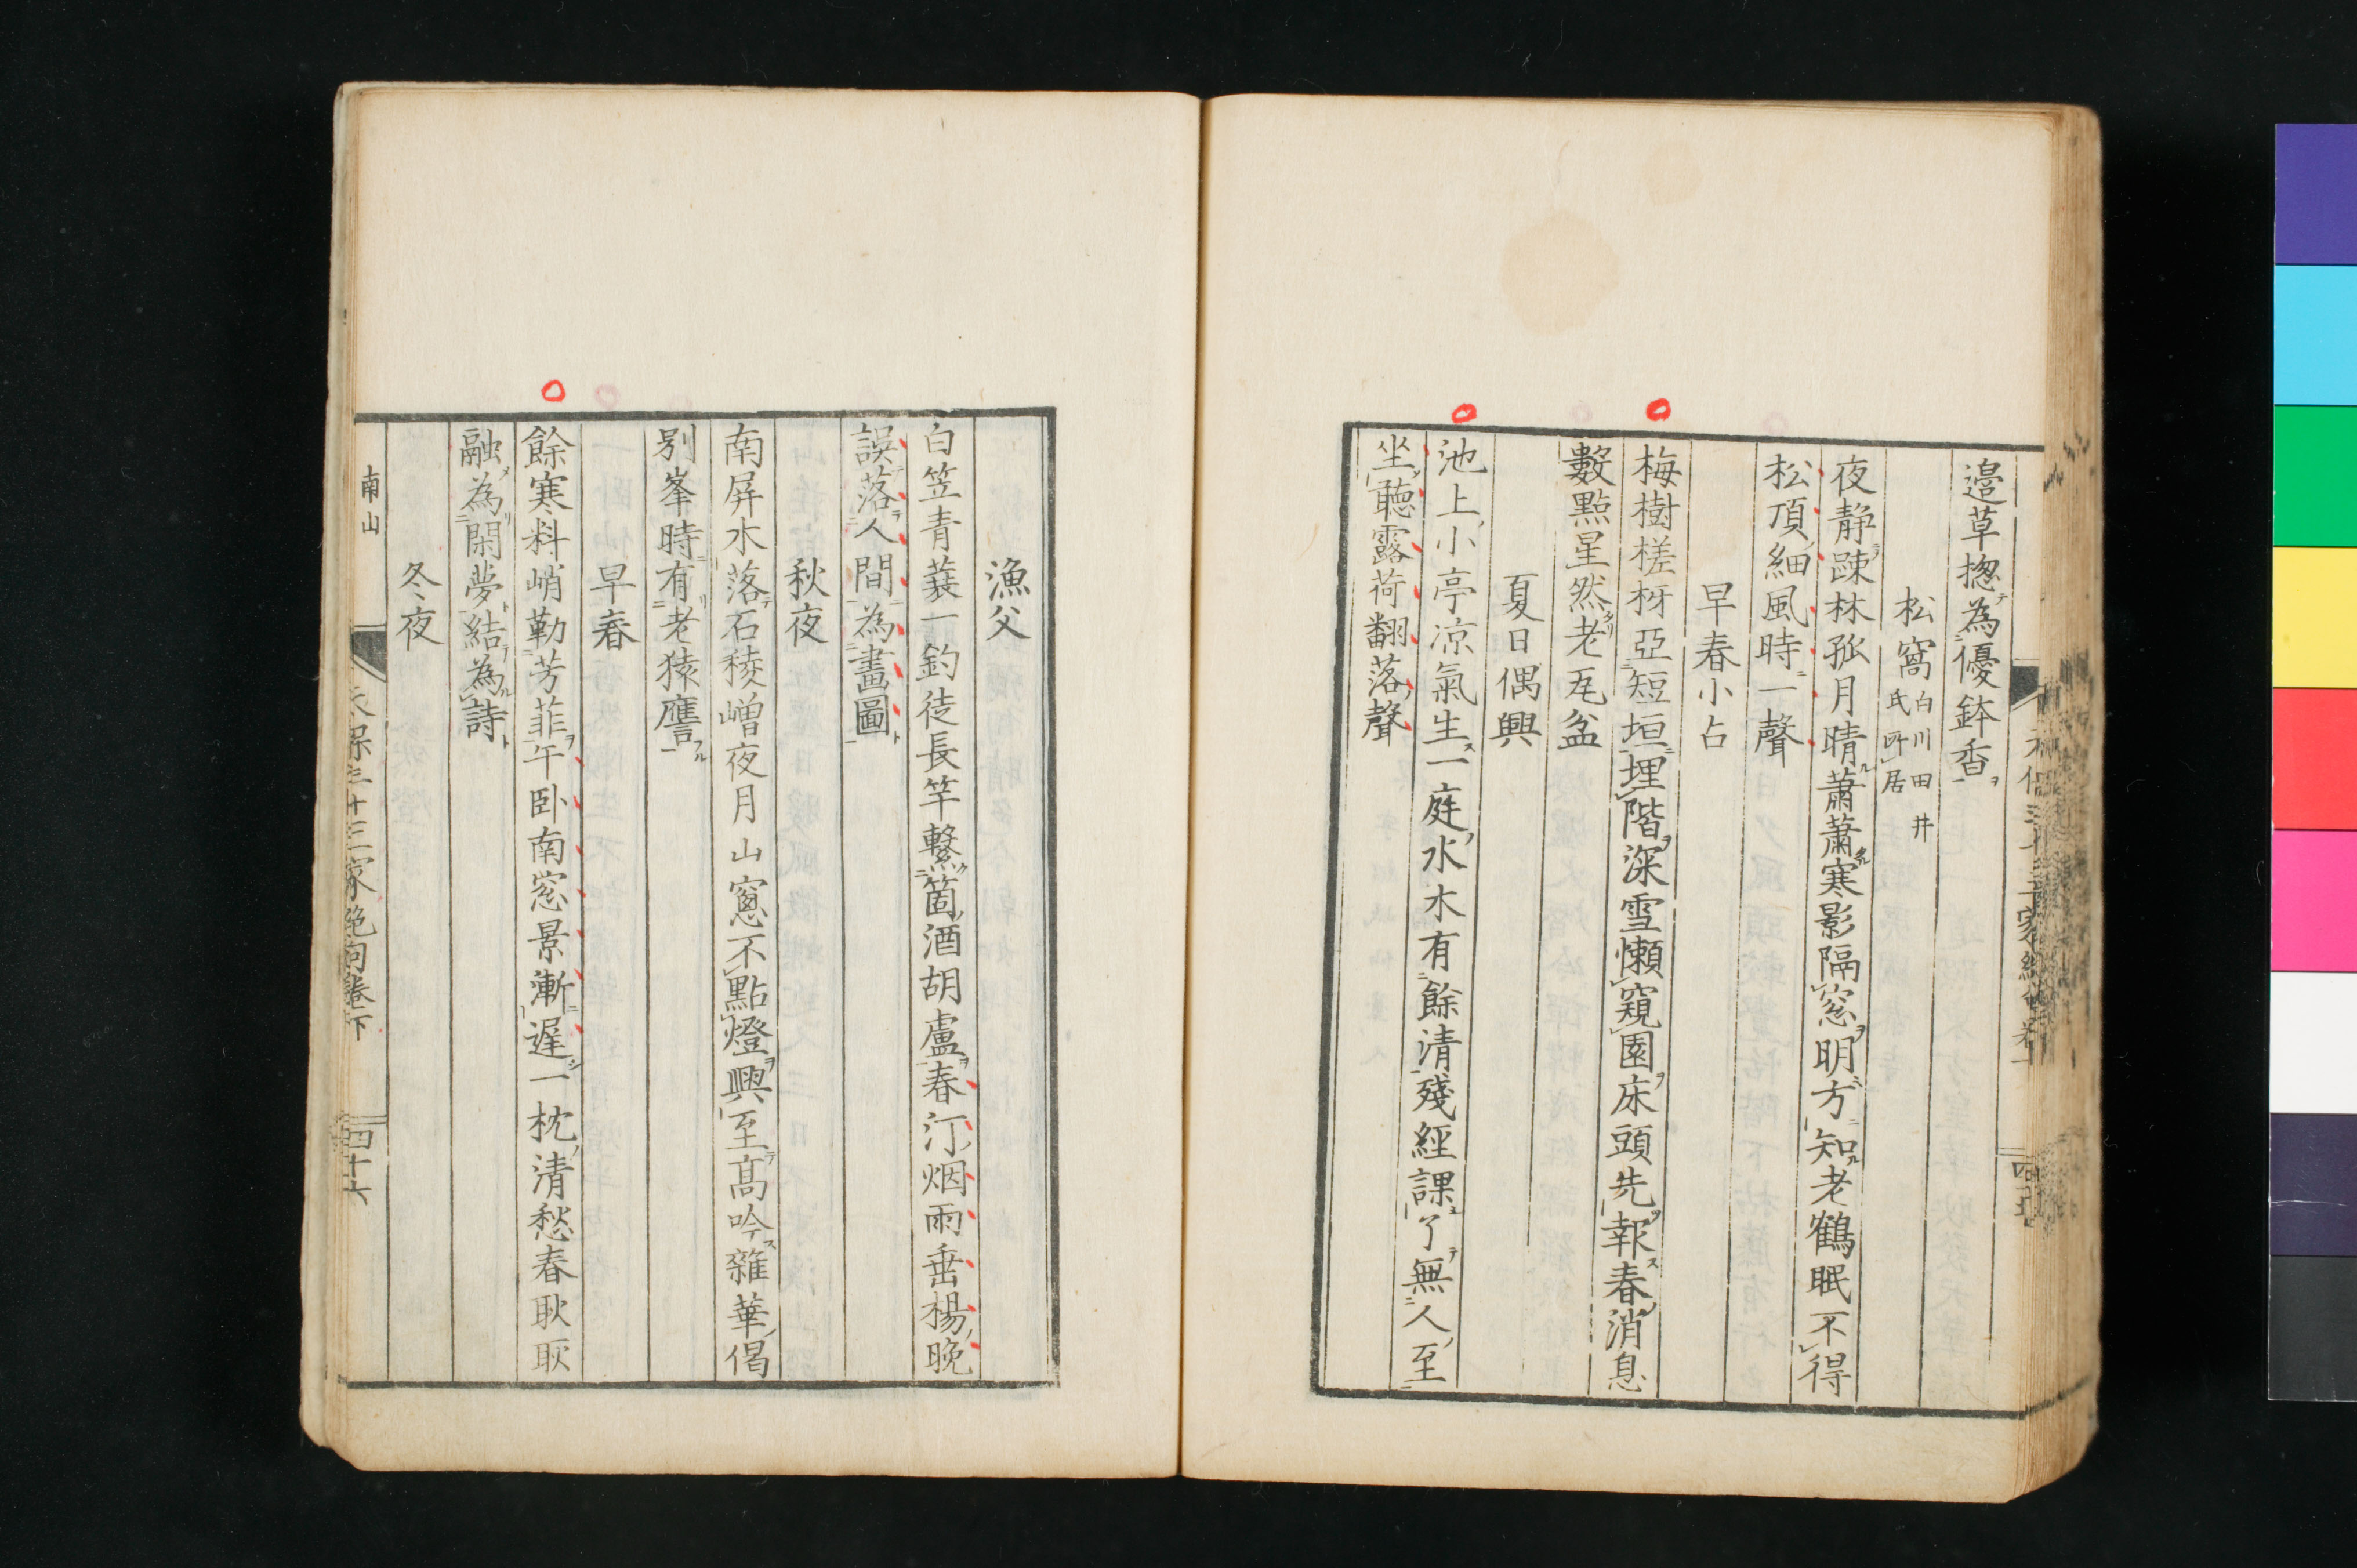 邉草揔為優鉢香
松窩 白川田井氏所居
夜静疎林孤月晴蕭蕭寒影隔窓明方知老鶴眠不得
松頂細風時一聲
早春小占
梅樹槎枒亞短垣埋階深雪懶窺園床頭先報春消息
數點星然老瓦盆
夏日偶興
池上小亭凉氣生一庭水木有餘清殘經課了無人至
坐聴露荷翻落聲
漁父
白笠青蓑一釣徒長竿繫箇酒胡盧春汀烟雨垂楊晩
誤落人間為畫圖
秋夜
南屏水落石稜嶒夜月山窻不點燈興至高吟雜華偈
別峯時有老猿譍
早春
餘寒料峭勒芳菲午卧南窓景漸遅一枕清愁春耿耿
融為閑夢結為詩
冬夜
南山
天保三十三家絶句卷下
四十六